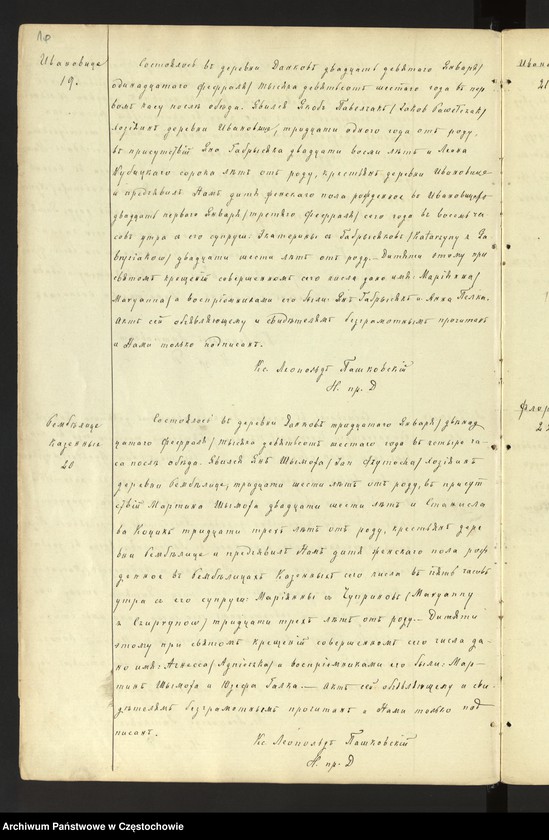 10
Ивановице
19.
Состоялось въ деревни Данковъ двадцать девятаго Января/
одинадцатаго Февраля/ тысяча девятьсотъ шестаго года въ пер
вомъ часу послѣ обѣда. Явился Якобъ Павелчакъ /Jakob Pawełczak/
хозяинъ деревни Ивановице, тридцати одного года отъ роду
въ присутствіи Яна Габрысяка двадцати восми лѣтъ и Леона
Кубацкаго сорока лѣтъ отъ роду, крестьянъ деревни Ивановице
и предъявилъ Намъ дитя женскаго пола рожденное въ Ивановицахъ
двадцать перваго Января /третяго Февраля/ сего года въ восемь ча
совъ утра а его супруги: Екатерины съ Габрысяковъ /Katarzyny z Ga
brysiaków/ двадцати шести лѣтъ отъ роду. Дитяти этому при
святомъ крещеніи совершенномъ сего числа дано имя: Маріянна/
Maryanna/ а воспріемниками его были: Янъ Габрысякъ и Анна Пелка.
Актъ сей объявляющему и свидѣтелямъ безграмотнымъ прочитанъ
и Нами только подписанъ.
Кс. Леопольдъ Пашковскій
Н. пр. Д
Рембѣлице
Казенные
20
Состоялось въ деревни Данковъ тридцатаго Января/ двенад
цатаго Февраля/ тысяча девятьсотъ шестаго года въ четыре ча
са послѣ обѣда. Явился Янъ Шымоха /Jan Szymocha/ хозяинъ
деревни Рембѣлице, тридцати шести лѣтъ отъ роду, въ присут
ствіи Мартина Шымоха двадцати шести лѣтъ и Станисла
ва Коцикъ тридцати трехъ лѣтъ отъ роду, крестьянъ дере
вни Рембѣлице и предъявилъ Намъ дитя женскаго пола рож
денное въ Рембѣлицахъ Казенныхъ сего числа въ пять часовъ
утра а его супруги: Маріянны съ Чуприновъ /Maryanny
z Czuprynów/ тридцати трехъ лѣтъ отъ роду. Дитяти
этому при святомъ крещеніи совершенномъ сего числа да
но имя: Агнеса/ Agnieszka/ а воспріемниками его были: Мар-
тинъ Шымоха и Юзефа Галка. Актъ сей объявляющему и сви
дѣтелямъ безграмотнымъ прочитанъ и Нами только под
писанъ.
Кс. Леопольдъ Пашковскій
Н. пр. Д
Ивано
21
Archiwum Państwowe w Częstochowie